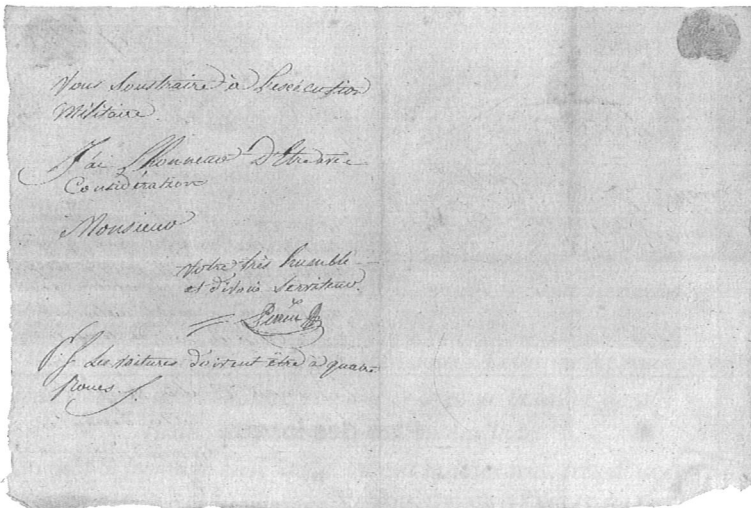 Vous soustraire à L'exécution
Militaire.
J'ai L'honneur D'Etre avec
Considération
Monsieur
Votre très humble
et dévoué Serviteur.
P.S. Les voitures doivent être à quatre
Roues.